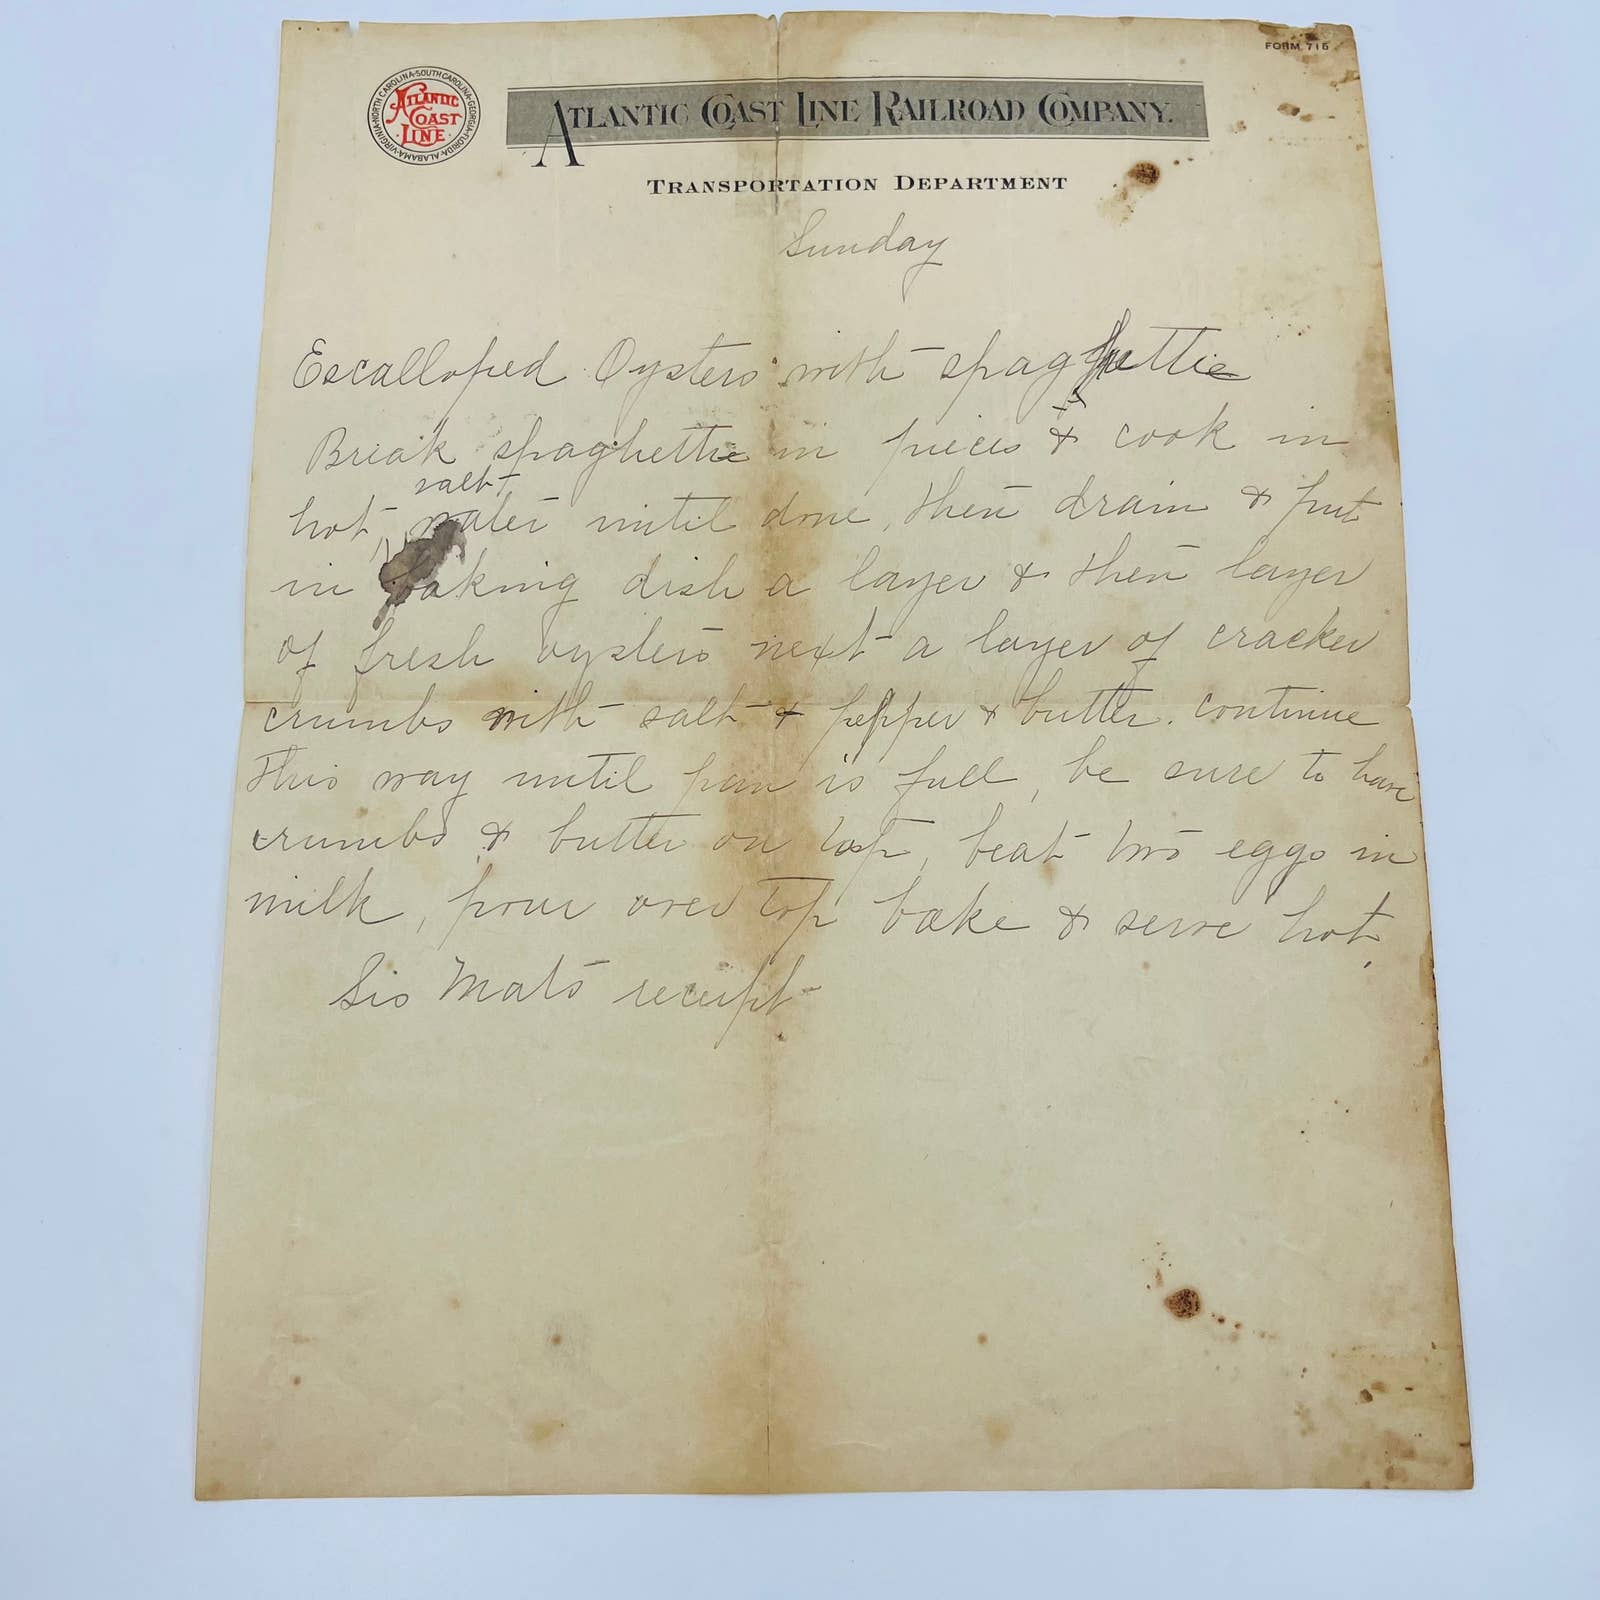 FORM 715
NORTH CAROLINA-SOUTH CAROLINA-GEORGIA-FLORIDA-ALABAMA-VIRGINIA
ATLANTIC
COAST
LINE
ATLANTIC COAST LINE RAILROAD COMPANY.
TRANSPORTATION DEPARTMENT
Sunday
Escalloped Oysters with spaghettie
Break spaghettie in pieces & cook in
hot salt water until done, then drain & put
in baking dish a layer & then layer
of fresh oysters next a layer of cracker
crumbs with salt & pepper & butter. continue
this way until pan is full, be sure to have
crumbs & butter on top, beat two eggs in
milk, pour over top bake & serve hot.
Sis Mat's receipt